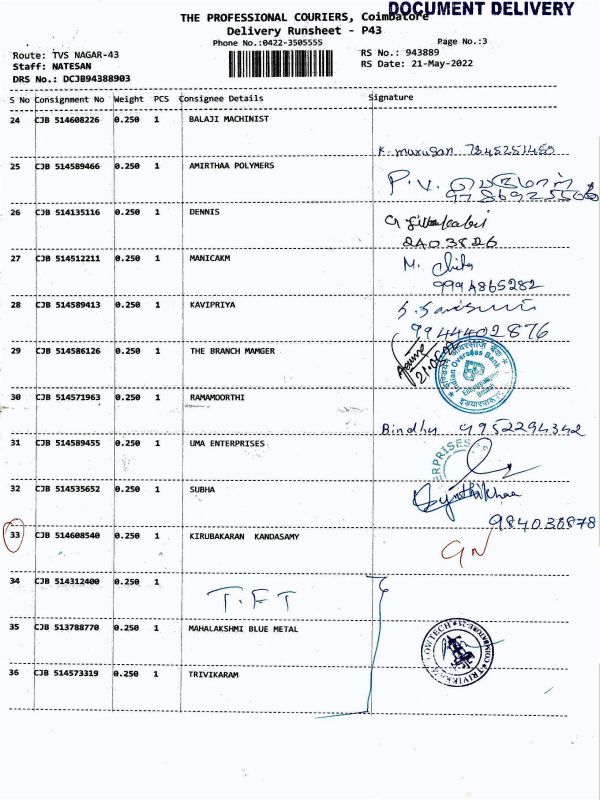 DOCUMENT DELIVERY
THE PROFESSIONAL COURIERS, Coimbatore
Delivery Runsheet - P43
Phone No.:0422-3505555 Page No.:3
Route: TVS NAGAR-43 RS No.: 943889
Staff: NATESAN RS Date: 21-May-2022
DRS No.: DCJB94388903
S No Consignment No Weight PCS Consignee Details Signature
24 CJB 514608226 0.250 1 BALAJI MACHINIST
K. murugan
25 CJB 514589466 0.250 1 AMIRTHAA POLYMERS
P. V.
26 CJB 514135116 0.250 1 DENNIS
27 CJB 514512211 0.250 1 MANICAKM M.
9994865282
28 CJB 514589413 0.250 1 KAVIPRIYA
9944402876
29 CJB 514586126 0.250 1 THE BRANCH MAMGER
Indian Overseas Bank
30 CJB 514571963 0.250 1 RAMAMOORTHI
Bindhu 9952294342
31 CJB 514589455 0.250 1 UMA ENTERPRISES
32 CJB 514535652 0.250 1 SUBHA
33 CJB 514608540 0.250 1 KIRUBAKARAN KANDASAMY
34 CJB 514312400 0.250 1
T.FT
35 CJB 513788770 0.250 1 MAHALAKSHMI BLUE METAL
36 CJB 514573319 0.250 1 TRIVIKARAM